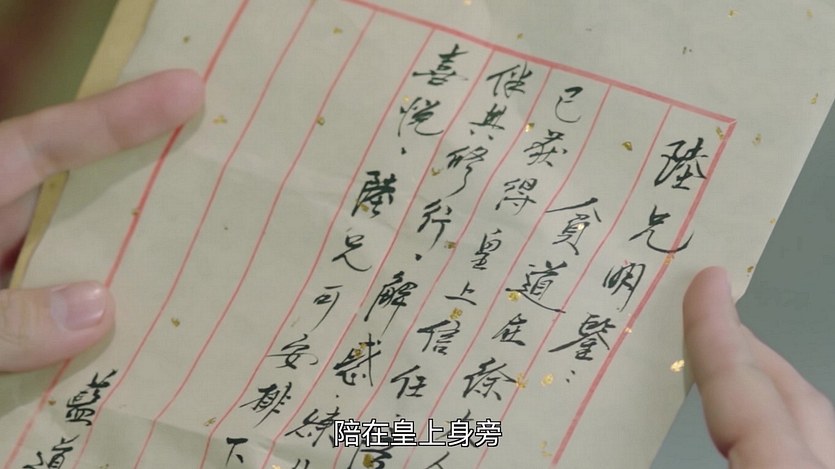 陸兄明鑒：
貧道在徐
已获得皇上信任
伴其修行，解惑煉
喜悦，陸兄可安排下
藍道
陪在皇上身旁